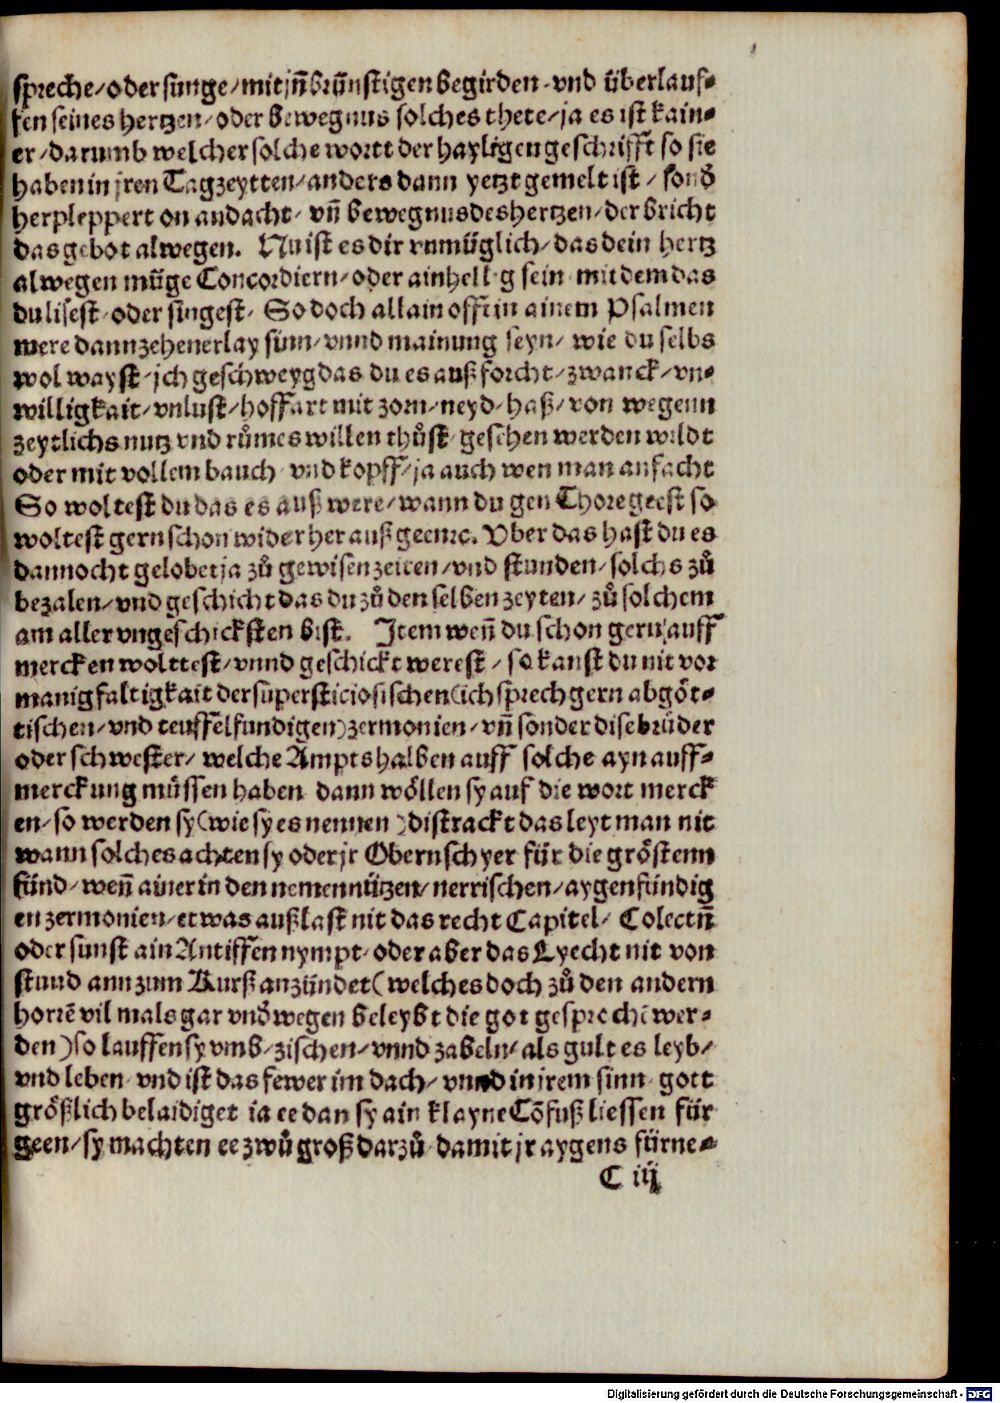 spreche/oder singe/mit jn̄brünstigen begirden/vnd überlauf⸗
fen seines hertzen/oder bewegnus solches thete/ja es ist kain⸗
er/darumb welcher solche wortt der hayligen geschrifft so sie
haben in jren Tagzeytten/anders dann yetzt gemelt ist/sonď
herpleppert on andacht/vn̄ bewegnus des hertzen/der bricht
das gebot alwegen. Nu ist es dir vnmüglich/das dein hertz
alwegen müge Concordiern/oder ainhellig sein mit dem das
du lisest/oder singest/ So doch allain offt in ainem Psalmen
were dann zehenerlay sinn/vnnd mainung seyn/wie du selbs
wol wayst/jch geschweyg das du es auß forcht/zwanck/vn⸗
willigkait/vnlust/hoffart mit zorn/neyd/haß/von wegenn
zeytlichs nutz vnd růmes willen thůst gesehen werden wildt
oder mit vollem bauch/vnd kopff/ja auch wen man anfacht
So woltest du das es auß were/wann du gen Thore geest so
woltest gern schon wider her auß geenn. Vber das hast du es
dannocht gelobet ja zů gewisen zeiten/vnd stunden/solchs zů
bezalen/vnd geschicht das du zů den selben zeyten/zů solchem
am aller vngeschicksten bist. Item wen̄ du schon gern auff
mercken wolttest/vnnd geschickt werest/so kanst du nit vor
manigfaltigkait der supersticiosischen(ich sprech gern abgöt⸗
tischen/vnd teuffelfundigen)zermonien/vn̄ sonder dise brüder
oder schwester/welche Ampts halben auff solche ayn auff⸗
merckung müssen haben dann wöllen sy auf die wort merck
en/so werden sy(wie sy es nennen)distrackt das leyt man nit
wann solches achten sy oder jr Obern schyer für die gröstenn
sünd/wen̄ ainer in den nemennützen/nerrischen/aygenfündig
en zermonien/etwas außlast nit das recht Capitel/Colectn̄
oder sunst ain Antiffen nympt/oder aber das Lyecht nit von
stund ann zum Kurß anzündet(welches doch zů den andern
horrē vil mals gar vnďwegen beleybt die got gesprochē wer⸗
den)so lauffen sy vmb/zischen/vnnd zabeln/als gult es leyb/
vnd leben/vnd ist das fewer im dach/vnnd in jrem sinn gott
größlich belaidiget ja ee dan sy ain klayne Cōfuß liessen für
geen/sy machten ee zwů groß darzů/damit jr aygens fürne⸗
C iij
Digitalisierung gefördert durch die Deutsche Forschungsgemeinschaft - DFG